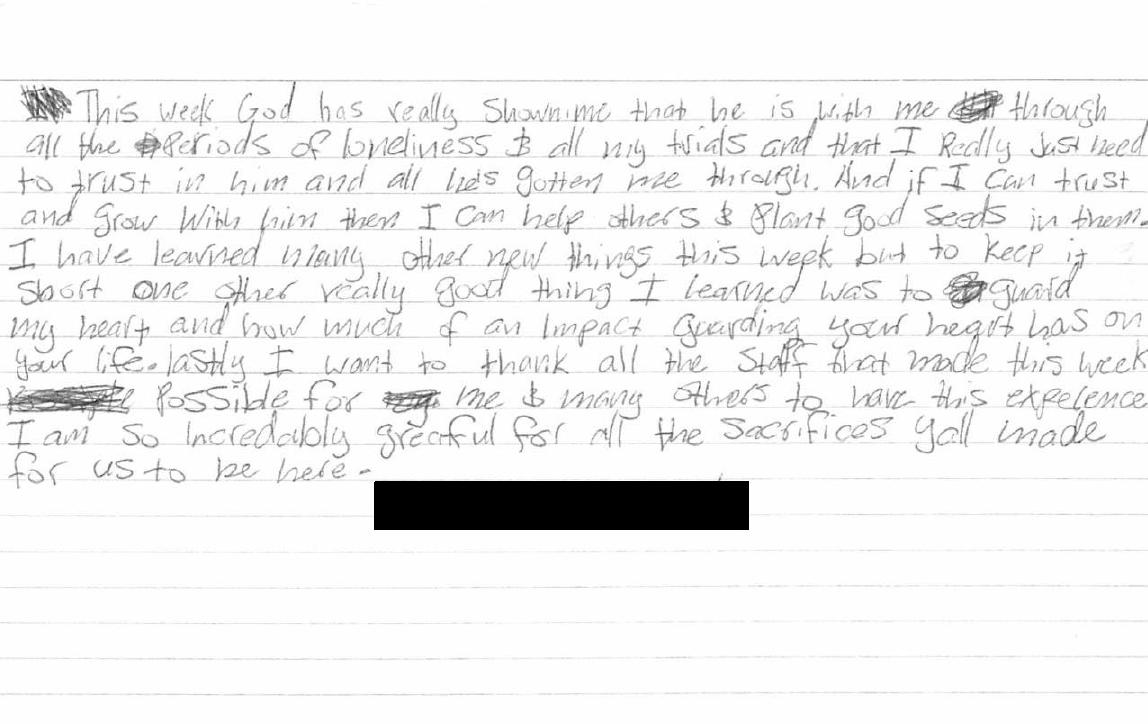 This week God has really shown me that he is with me through
all the periods of loneliness & all my trials and that I Really Just need
to trust in him and all he's gotten me through. And if I can trust
and grow with him then I can help others & Plant good seeds in them.
I have learned many other new things this week but to keep it
short one other really good thing I learned was to guard
my heart and how much of an Impact guarding your heart has on
your life. lastly I want to thank all the staff that made this week
Possible for me & many others to have this expeience
I am so Incredably greatful for all the sacrifices yall made
for us to be here.